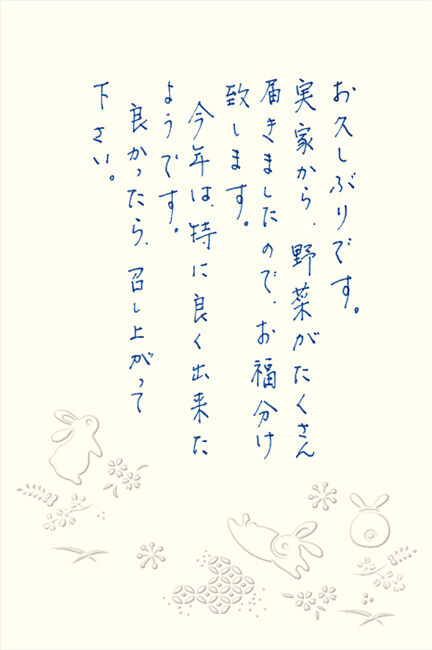 お久しぶりです。
実家から、野菜がたくさん
届きましたので、お福分け
致します。
今年は、特に良く出来た
ようです。
良かったら、召し上がって
下さい。